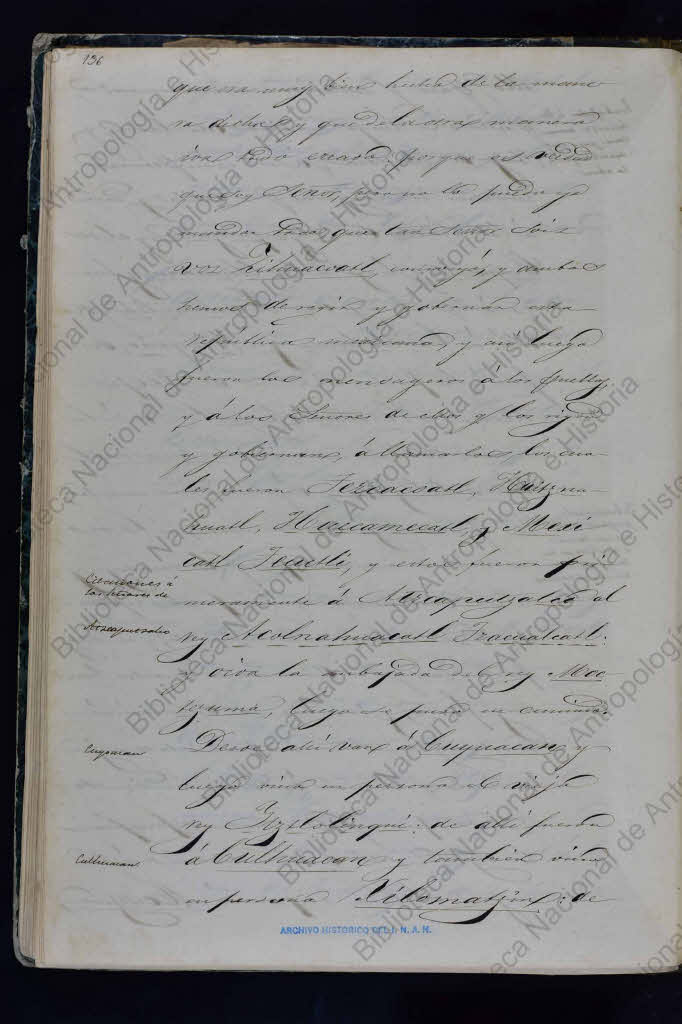 136
que era muy bien hecho de la mane
ra dicha, y que de la otra manera
iva todo errado: porque es verdad
que soy Señor, pero no lo puedo yo
mandar todo, que tan Señor sois
vos Zihuacoatl, como yo, y ambos
hemos de regir y gobernar esta
republica mexicana, y asi luego
fueron los mensageros á los pueblos,
y á los Señores de ellos y los rigen
y gobiernan, á llamarlos, los cua-
les fueron Tezcacoatl, Huitzna-
huatl, Huecamecatl, y Mexi
catl Teuctli, y estos fueron pri
meramente á Atzcaputzalco al
rey Acolnahuacatl Tzacualcatl:
y oida la embajada del rey Moc-
tezuma, luego se puso en camino.
Desde ahi van á Cuyuacan, y
luego vino en persona el viejo
rey Ytztlolinqui: de alli fueron
á Culhuacan y tambien vino
en persona Xilomatzin: de
Citaciones á
los Señores de
Atzcaputzalco
Cuyoacan
Culhuacan
ARCHIVO HISTORICO DEL I. N. A. H.
Biblioteca Nacional de Antropología e Historia